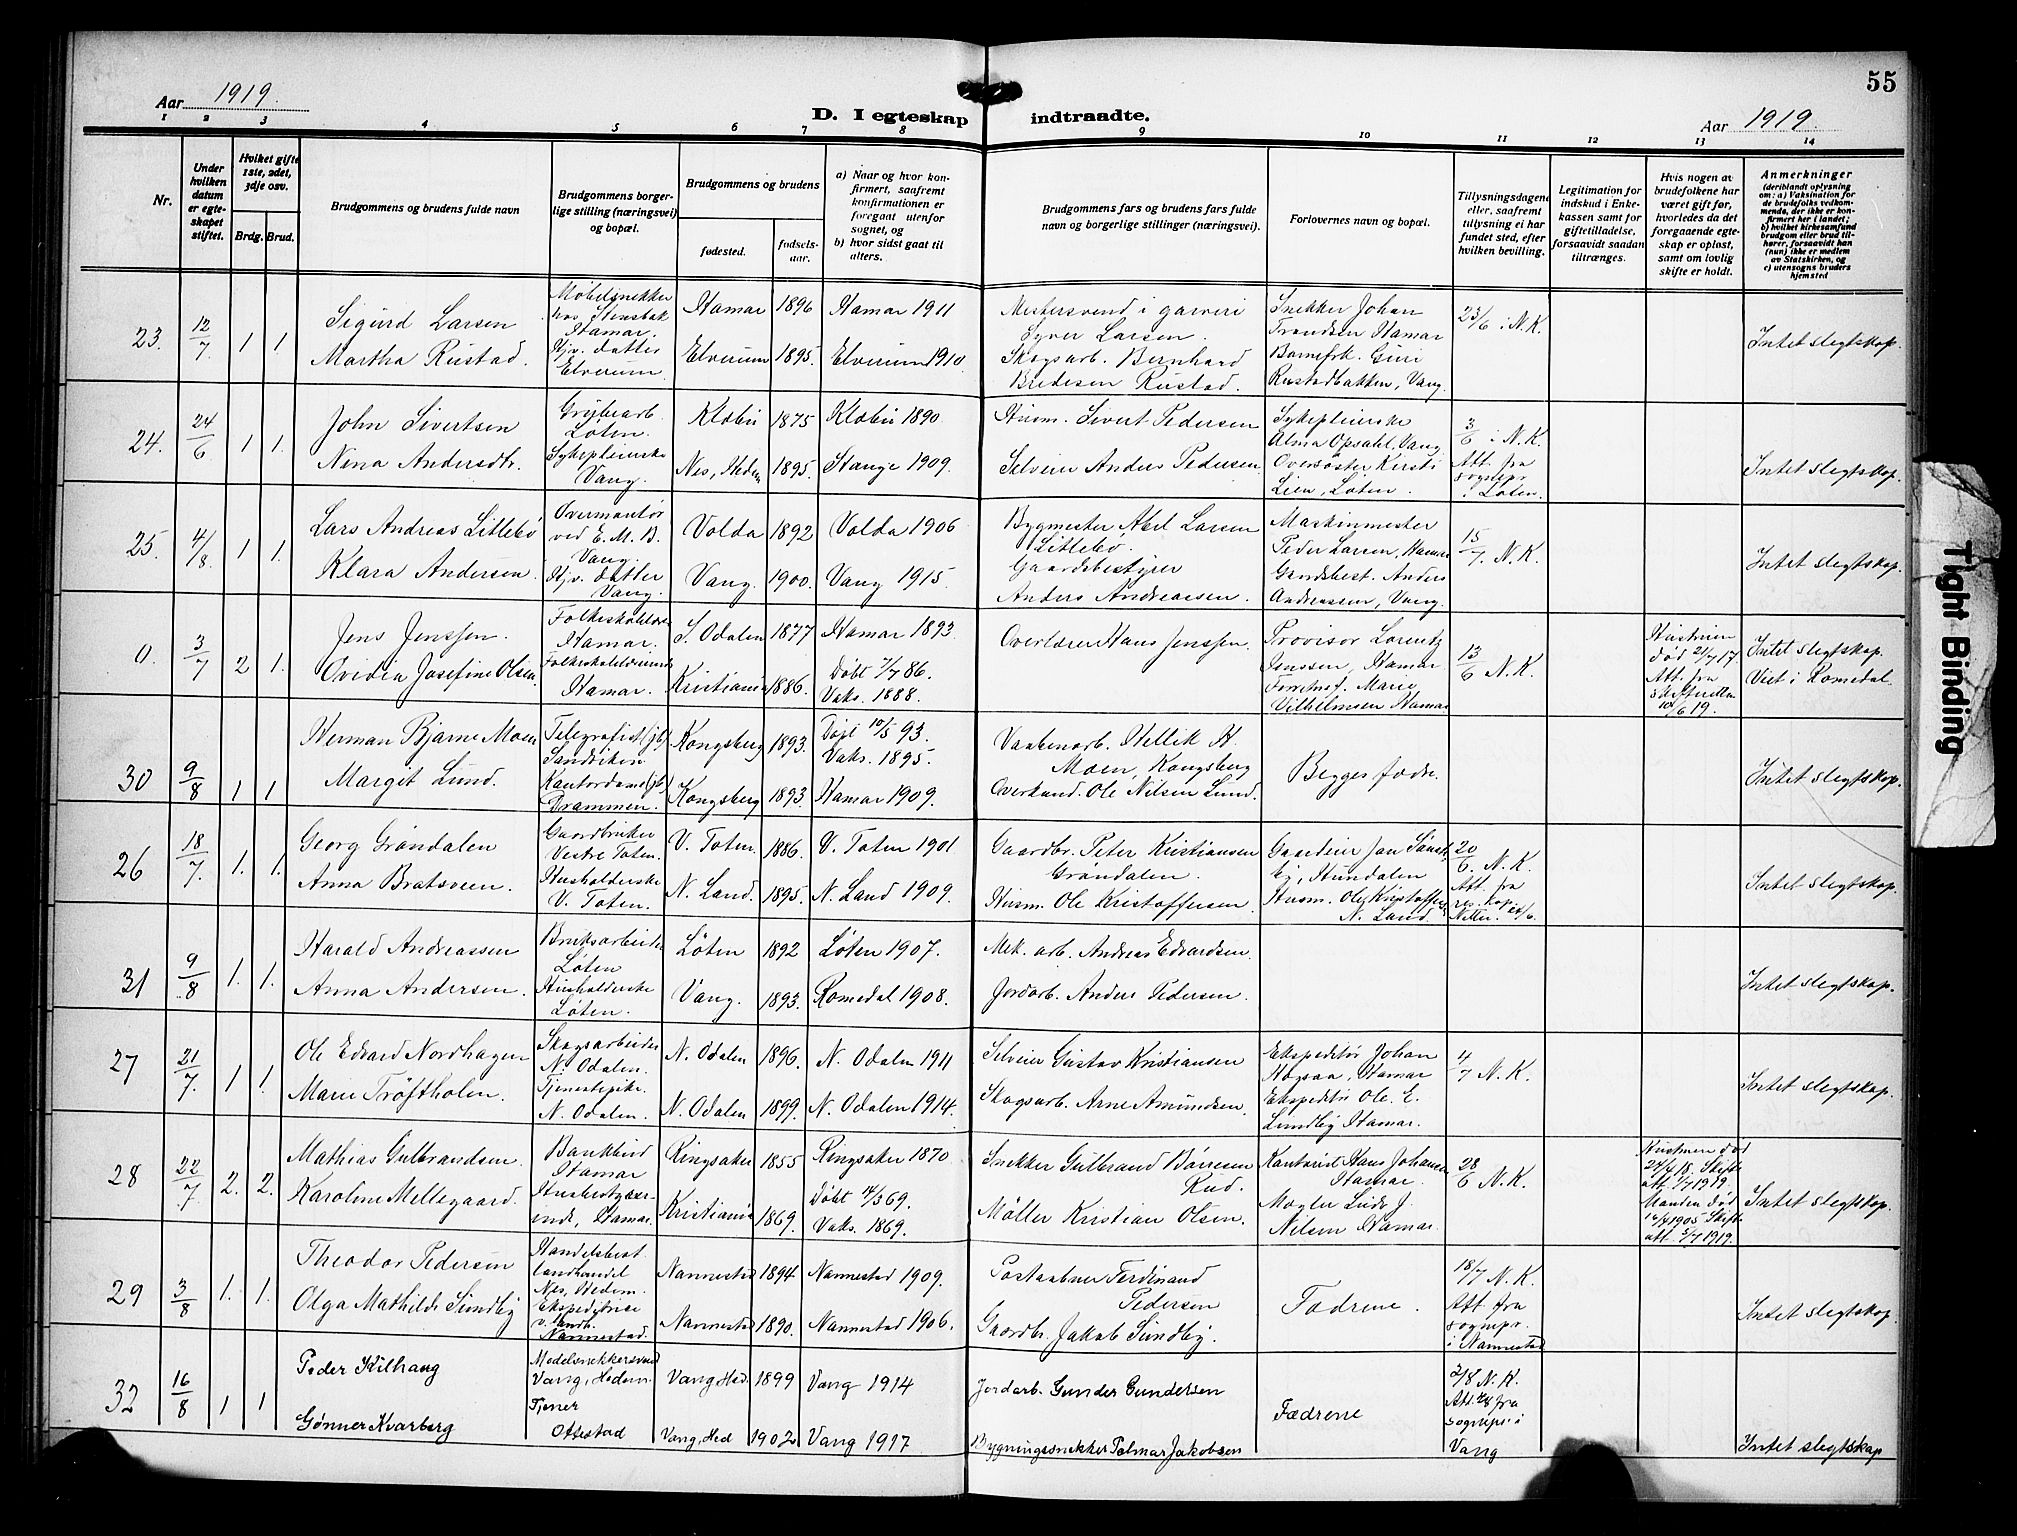 55
Aar 1919.
D. I egteskap indtraadte.
Aar 1919.
1 2 3 4 5 6 7 8 9 10 11 12 13 14
Nr.
Under hvilken datum er egteskapet stiftet.
Hvilket gifte 1ste, 2det, 3dje osv.
Brdg. Brud.
Brudgommens og brudens fulde navn
Brudgommens borgerlige stilling (næringsvei) og bopæl.
Brudgommens og brudens
fødested.
fødselsaar.
a) Naar og hvor konfirmert, saafremt konfirmationen er foregaat utenfor sognet, og
b) hvor sidst gaat til alters.
Brudgommens fars og brudens fars fulde navn og borgerlige stillinger (næringsvei).
Forlovernes navn og bopæl.
Tillysningsdagene eller, saafremt tillysning ei har fundet sted, efter hvilken bevilling.
Legitimation for indskud i Enkekassen samt for giftetilladelse, forsaavidt saadan tiltrænges.
Hvis nogen av brudefolkene har været gift før, hvorledes da det foregaaende egteskap er opløst, samt om lovlig skifte er holdt.
Anmerkninger
(deriblandt oplysning om: a) Vaksination for de brudefolks vedkommende, der ikke er konfirmert her i landet; b) hvilket kirkesamfund brudgom eller brud tilhører, forsaavidt han (hun) ikke er medlem av Statskirken, og c) utensogns bruders hjemsted
23. 12/7 1 1. Sigurd Larsen Møbelsnekker hos Stensbak Hamar. Hamar 1896 Hamar 1911 Mestersvend i garveri Syver Larsen Snekker Johan Trondsen Hamar 23/6 i N.K.
Martha Rustad. Hjv. datter Elverum Elverum 1895. Elverum 1910. Skogsarb. Bernhard Bredesen Rustad. Barnefrk. Guri Rustadbakken, Vang. Intet slegtskap.
24. 24/6 1 1. John Sivertsen Grøftearb. Løten. Klæbu 1875 Klæbu 1890 Husm. Sivert Pedersen Sykepleierske Alma Opsahl, Vang 3/6 i N.K.
Nina Andersdtr. Sykepleierske Vang. Nes, Hedm 1895. Stange 1909. Selveier Anders Pedersen Oversøster Kirsti Lien, Løten. Att. fra sognepr. i Løten. Intet slegtskap.
25. 4/8 1 1. Lars Andreas Littlebø Overmontør ved E.M.B. Vang. Volda 1892 Volda 1906 Bygmester Abel Larsen Littlebø. Maskinmester Peder Larsen, Hamar 15/7 N.K.
Klara Andersen. Hjv. datter Vang. Vang. 1900. Vang 1915. Gaardsbestyrer Anders Andreassen. Gaardsbest. Anders Andreassen, Vang. Intet slegtskap.
0. 3/7 2 1. Jens Jenssen. Folkeskolelærer Hamar. S. Odalen 1877 Hamar 1893. Overlærer Hans Jenssen. Provisor Lorentz Jenssen, Hamar 13/6 N.K. Hustruen død 21/7 17. Att. fra skifteretten 10/6 19. Intet slegtskap.
Ovidia Josefine Olsen. Folkeskolelærerinde Hamar. Kristiania 1886. Døbt 7/7 86. Vaks. 1888. Forretnsf. Marie Vilhelmsen Hamar Viet i Romedal.
30 9/8 1 1 Herman Bjarne Moen Telegrafist (jb) Sandviken Kongsberg 1893. Døpt 10/5 93. Vaks. 1895. Vaabenarb. Hellik H. Moen, Kongsberg Begges fædre.
Margit Lund. Kontordame (jb) Drammen. Kongsberg 1893. Hamar 1909. Overkond. Ole Nilsen Lund. Intet slegtskap.
26 18/7. 1. 1. Georg Grøndalen Gaardbruker Vestre Toten. V. Toten. 1886. V. Toten 1901 Gaardbr. Peter Kristiansen Grøndalen. Gaardeier Jon Sønst. Eg, Hundalen 20/6. N.K.
Anna Bratsveen. Husholderske V. Toten. N. Land. 1895. N. Land 1909. Husm. Ole Kristoffersen Husm. Ole Kristoffersen N. Land. Att. fra res. kap. Intet slegtskap.
31 9/8 1. 1. Harald Andreassen Bruksarbeider Løten Løten 1892 Løten 1907. Mek. arb. Andreas Edvardsen.
Anna Andersen. Husholderske Løten. Vang. 1893. Romedal 1908. Jordarb. Anders Pedersen. Intet slegtskap.
27 21/7. 1 1. Ole Edvard Nordhagen Skogsarbeider N. Odalen. N. Odalen 1896. N. Odalen 1911 Selveier Gustav Kristiansen Ekspeditør Johan Hogsaa, Hamar 4/7 N.K.
Marie Trøftholen. Tjenestepike N. Odalen. N. Odalen 1899. N. Odalen 1914. Skogsarb. Arne Amundsen. Ekspeditør Ole E. Lundby Hamar. Intet slegtskap.
28 22/7 2. 2. Mathias Gulbrandsen. Bankbud Hamar Ringsaker 1855 Ringsaker 1870 Snekker Gulbrand Børresen Rud. Kontorist Hans Johansen Hamar. 28/6 N.K. Hustruen død 24/4 18. Skifteatt. 1/7 1919.
Karoline Mellegaard. Husbestyrerinde, Hamar. Kristiania 1869. Døbt 14/3 69. Vaks. 1869. Møller Kristian Olsen. Mogler Nilsen Hamar. Manden død 1905 Skifteatt. 5/7 1919. Intet slegtskap.
29 3/8 1. 1. Theodor Pedersen Handelsbest. landhandel Nes, Hedem. Nannestad 1894 Nannestad 1909. Postaabner Ferdinand Pedersen Fædrene. 18/7 N.K.
Olga Mathilde Sundby Ekspeditrise v. landh. Nannestad. Nannestad 1890. Nannestad 1906. Gaardbr. Jakob Sundby. Att. fra sognepr. i Nannestad Intet slegtskap.
32 16/8 1 1 Peder Kilhaug Modelsnekkersvend Vang, Hedem. Vang Hed. 1899 Vang 1914 Jordarb. Gunder Gundersen Fædrene 2/8 N.K.
Gønner Kvarberg Tjener Ottestad Vang, Hed 1902 Vang 1917 Bygningssnekker Palmar Jakobsen Att. fra Sognepr. i Vang Intet slegtskap
Tight Binding